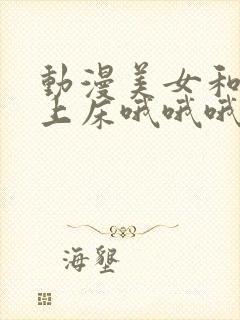 動漫美女和
上床哦哦哦
海墾